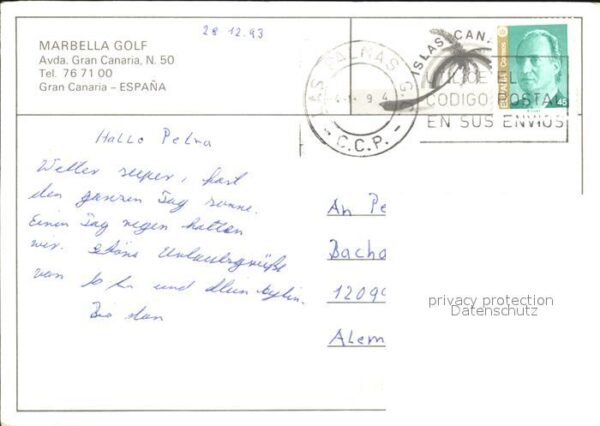 28 12.93
MARBELLA GOLF
Avda. Gran Canaria, N. 50
Tel. 76 71 00
Gran Canaria – ESPAÑA
LAS PALMAS G.C.
9 4
- C.C.P. -
ISLAS CANA
UTILICE EL
CODIGO POSTAL
EN SUS ENVIOS
ESPAÑA Correos
45
Hallo Petra
Wetter super, fast
den ganzen Tag sonne.
Einen Tag regen hatten
wir. schöne Urlaubsgrüße
von und
Bis dan
An Pe
Bacho
12099
Alem
privacy protection
Datenschutz